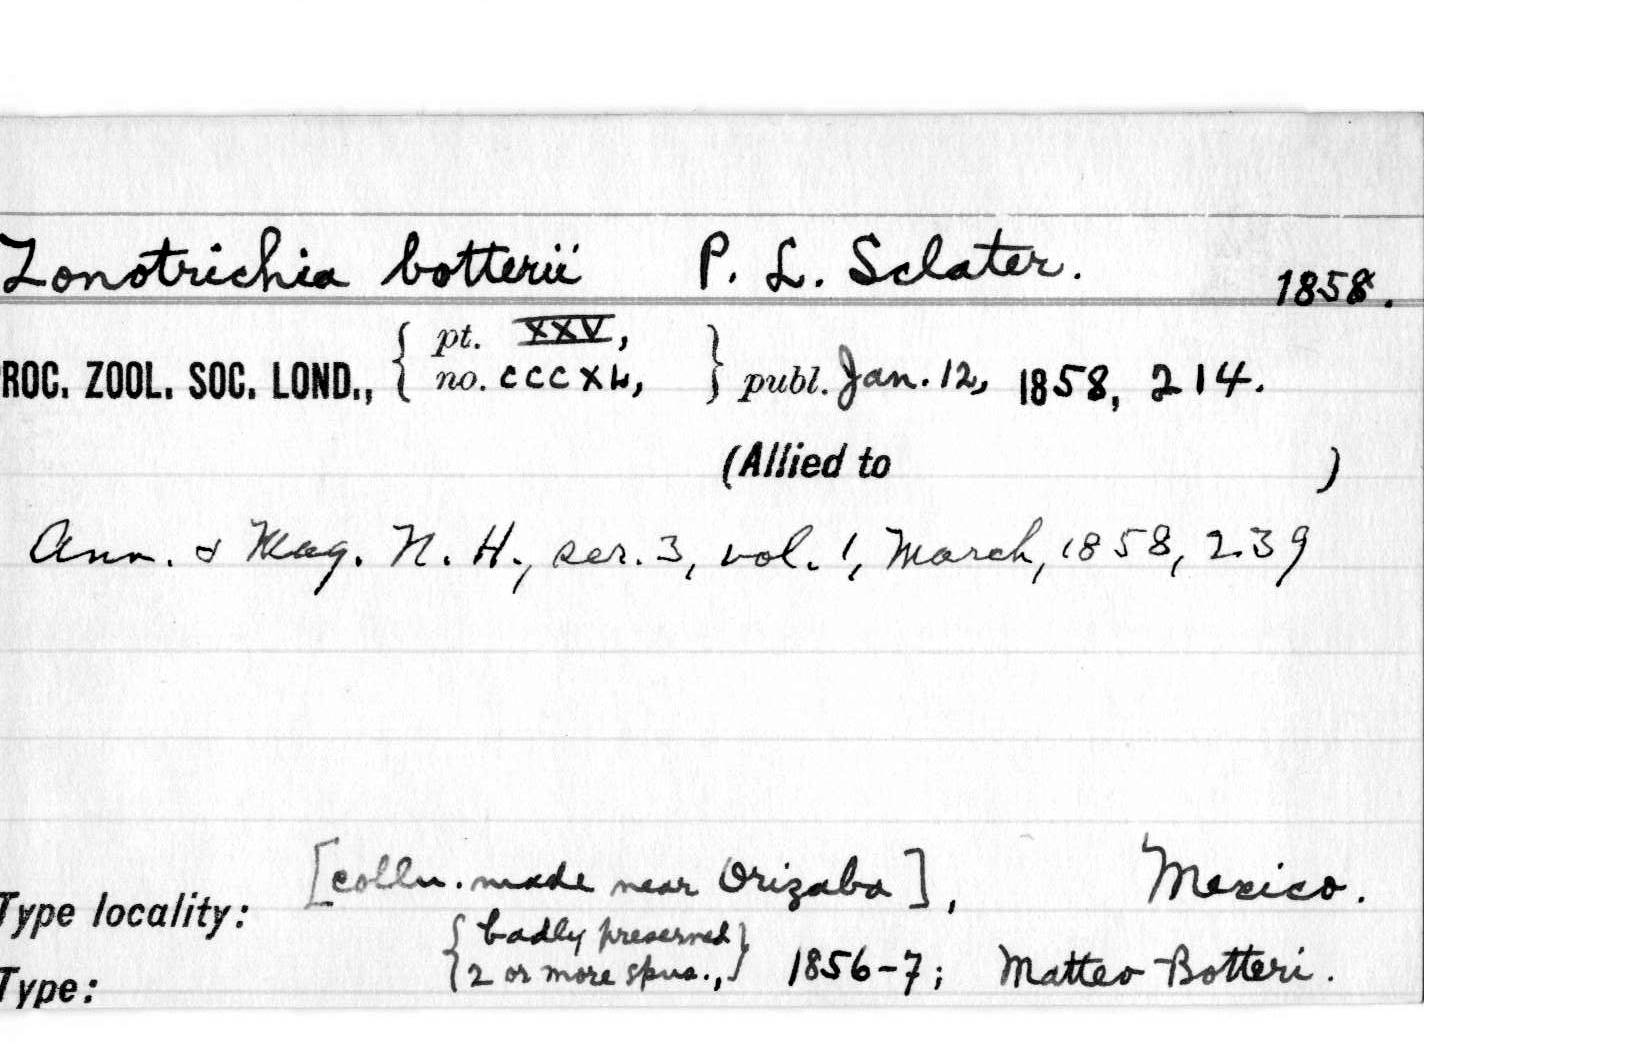 Zonotrichia botterii P. L. Sclater. 1858.
pt. XXV,
ROC. ZOOL. SOC. LOND., { no. CCCXL, } publ. Jan. 12, 1858, 214.
(Allied to )
Ann. & Mag. N. H., ser. 3, vol. 1, March, 1858, 239
[colln. made near Orizaba], Mexico.
Type locality:
{ badly preserved }
{ 2 or more spns., } 1856-7; Matteo Botteri.
Type: